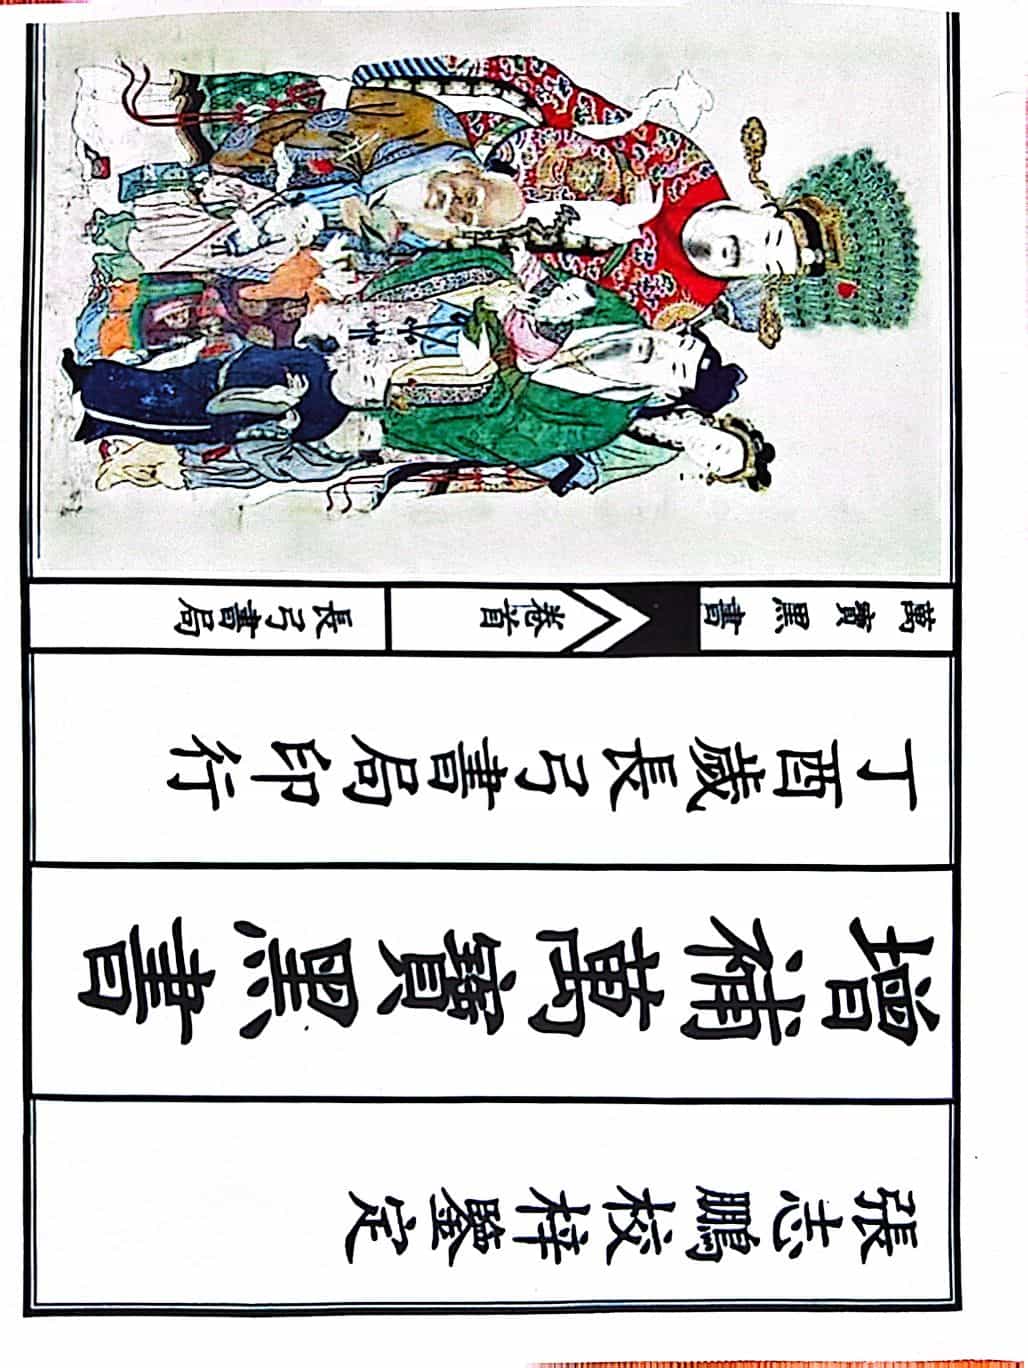 張志鵬校梓鑒定
增補萬寶黑書
丁酉歲長弓書局印行
萬寶黑書
卷首
長弓書局